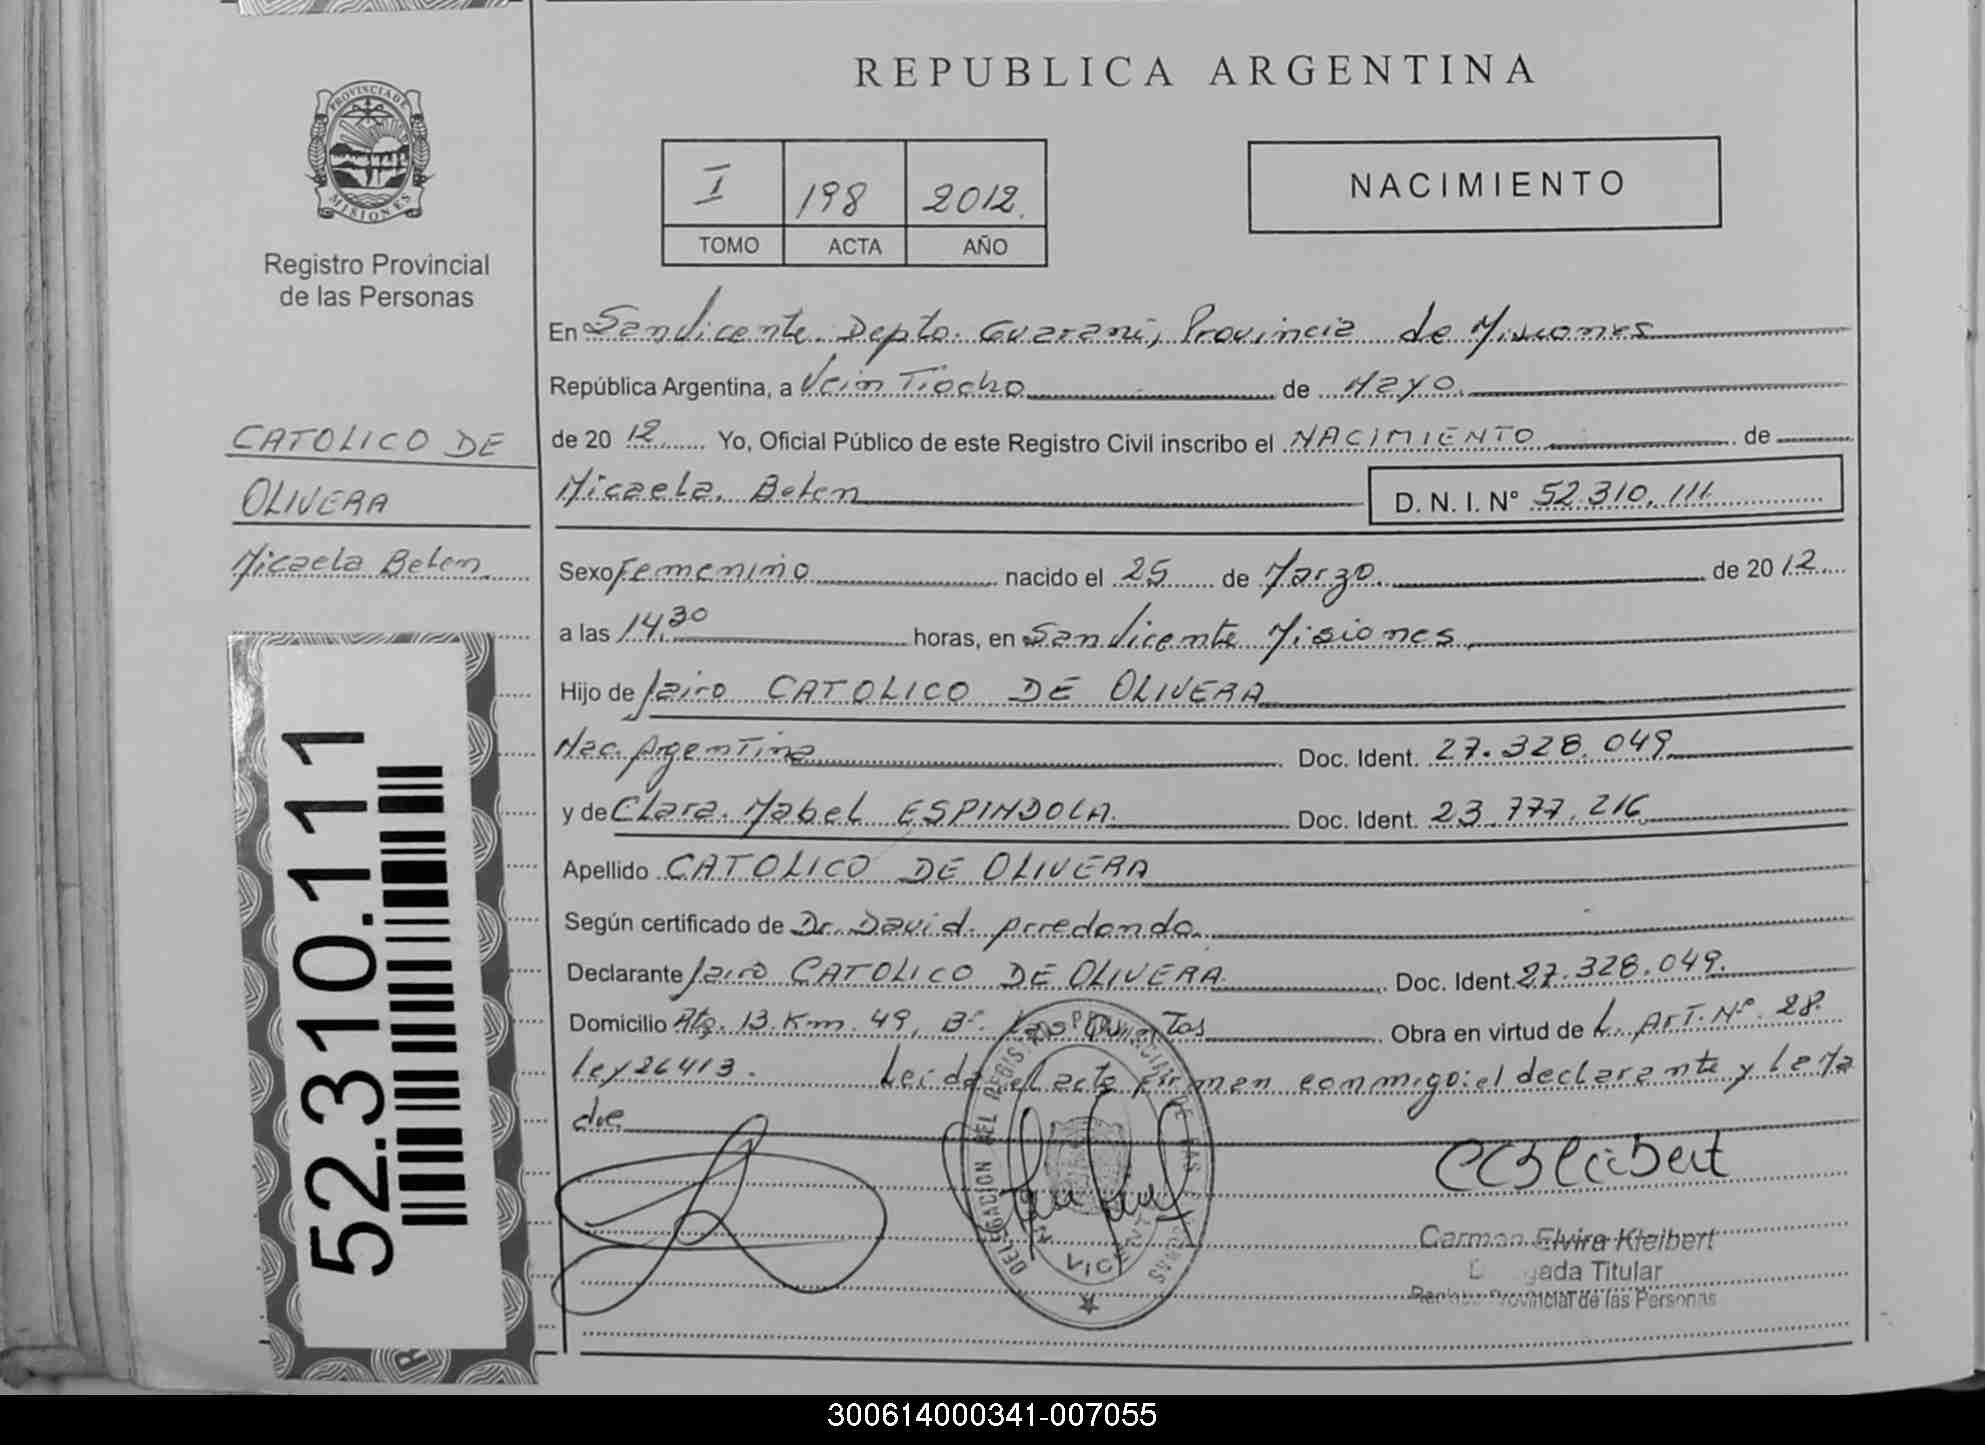 REPUBLICA ARGENTINA
PROVINCIA DE MISIONES
Registro Provincial
de las Personas
I 198 2012.
TOMO ACTA AÑO
NACIMIENTO
En San Vicente. Depto. Guaraní, Provincia de Misiones
República Argentina, a VeinTiocho de Mayo.
de 2012 Yo, Oficial Público de este Registro Civil inscribo el NACIMIENTO de
Micaela Belen D. N. I. Nº 52.310.111
CATOLICO DE
OLIVERA
Micaela Belen
Sexo Femenino nacido el 25 de Marzo de 2012
a las 14,30 horas, en San Vicente Misiones
Hijo de Jairo CATOLICO DE OLIVERA
Nac. ArgenTina Doc. Ident. 27.328.049
y de Clara Mabel ESPINDOLA Doc. Ident. 23.777.216
Apellido CATOLICO DE OLIVERA
Según certificado de Dr. David Arredondo
Declarante Jairo CATOLICO DE OLIVERA Doc. Ident. 27.328.049.
Domicilio Rta. 13. Km. 49, Bº. Las QuinTas Obra en virtud de L. ArT. Nº. 28.
Ley 26413. Leida el acta firman conmigo: el declarante y La Ma
dre
52.310.111
DELEGACION DEL REGISTRO PROVINCIAL DE LAS PERSONAS
Carmen Elvira Kleibert
Delegada Titular
Registro Provincial de las Personas
300614000341-007055